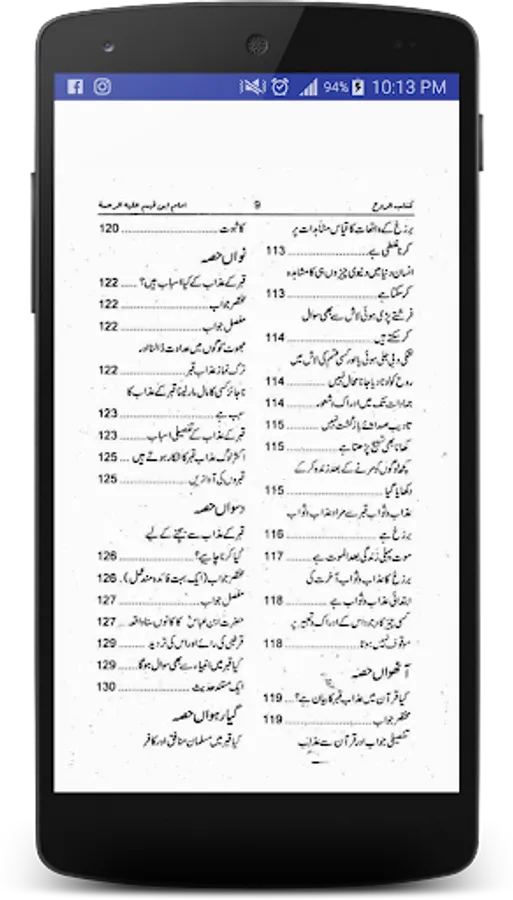 94% 10:13 PM
کتاب الروح 9 امام ابن قیم علیہ الرحمۃ
برزخ کے واقعات کا قیاس مشاہدات پر
کرنا غلطی ہے 113
انسان دنیا میں دنیوی چیزوں ہی کا مشاہدہ
کر سکتا ہے 113
فرشتے پڑی ہوئی لاش سے بھی سوال
کر سکتے ہیں 114
لٹکی، ڈوبی جلی ہوئی یا اور کسی قسم کی لاش میں
روح کو لوٹا دیا جانا محال نہیں 114
جمادات تک میں ادراک و شعور 114
تاویب صدائے بازگشت نہیں 115
کھانا بھی تسبیح پڑھتا ہے 115
کچھ لوگوں کو مرنے کے بعد زندہ کر کے
دکھایا گیا 115
عذاب و ثواب قبر سے مراد عذاب و ثواب
برزخ ہے 116
موت پہلی زندگی بعد الموت ہے 117
برزخ کا عذاب و ثواب آخرت کی
ابتدائی عذاب و ثواب ہے 118
کسی چیز کا وجود اس کے ادراک و تعبیر پر
موقوف نہیں ہوتا 118
آٹھواں حصہ
کیا قرآن میں عذاب قبر کا بیان ہے؟ 119
مختصر جواب 119
تفصیلی جواب اور قرآن سے عذاب
کا ثبوت 120
نواں حصہ
قبر کے عذاب کے کیا اسباب ہیں؟ 122
مختصر جواب 122
مفصل جواب 122
جھوٹ لوگوں میں عداوت ڈالنا اور
ترک نماز عذاب قبر 122
ناجائز کسی کا مال مار لینا قبر کے عذاب کا
سبب ہے 123
قبر کے عذاب کے تفصیلی اسباب 123
اکثر لوگ عذاب قبر کا شکار ہوتے ہیں 125
قبروں کی آوازیں 125
دسواں حصہ
قبر کے عذاب سے بچنے کے لیے
کیا کرنا چاہیے؟ 126
مختصر جواب (ایک بہت فائدہ مند عمل) 126
مفصل جواب 127
حضرت ابن عباسؓ کا کانوں سنا واقعہ 127
قرطبی کی رائے اور اس کی تردید 129
کیا قبر میں انبیاء سے بھی سوال ہوگا 129
ایک مستند حدیث 130
گیارہواں حصہ
کیا قبر میں مسلمان منافق اور کافر